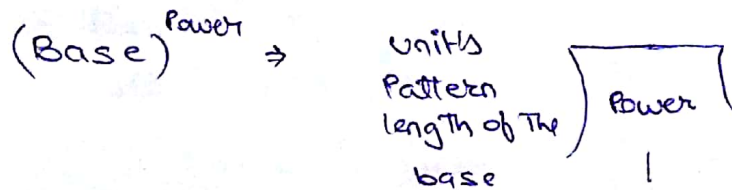 (Base)^Power ⇒
unit's
Pattern
length of The
base
Power